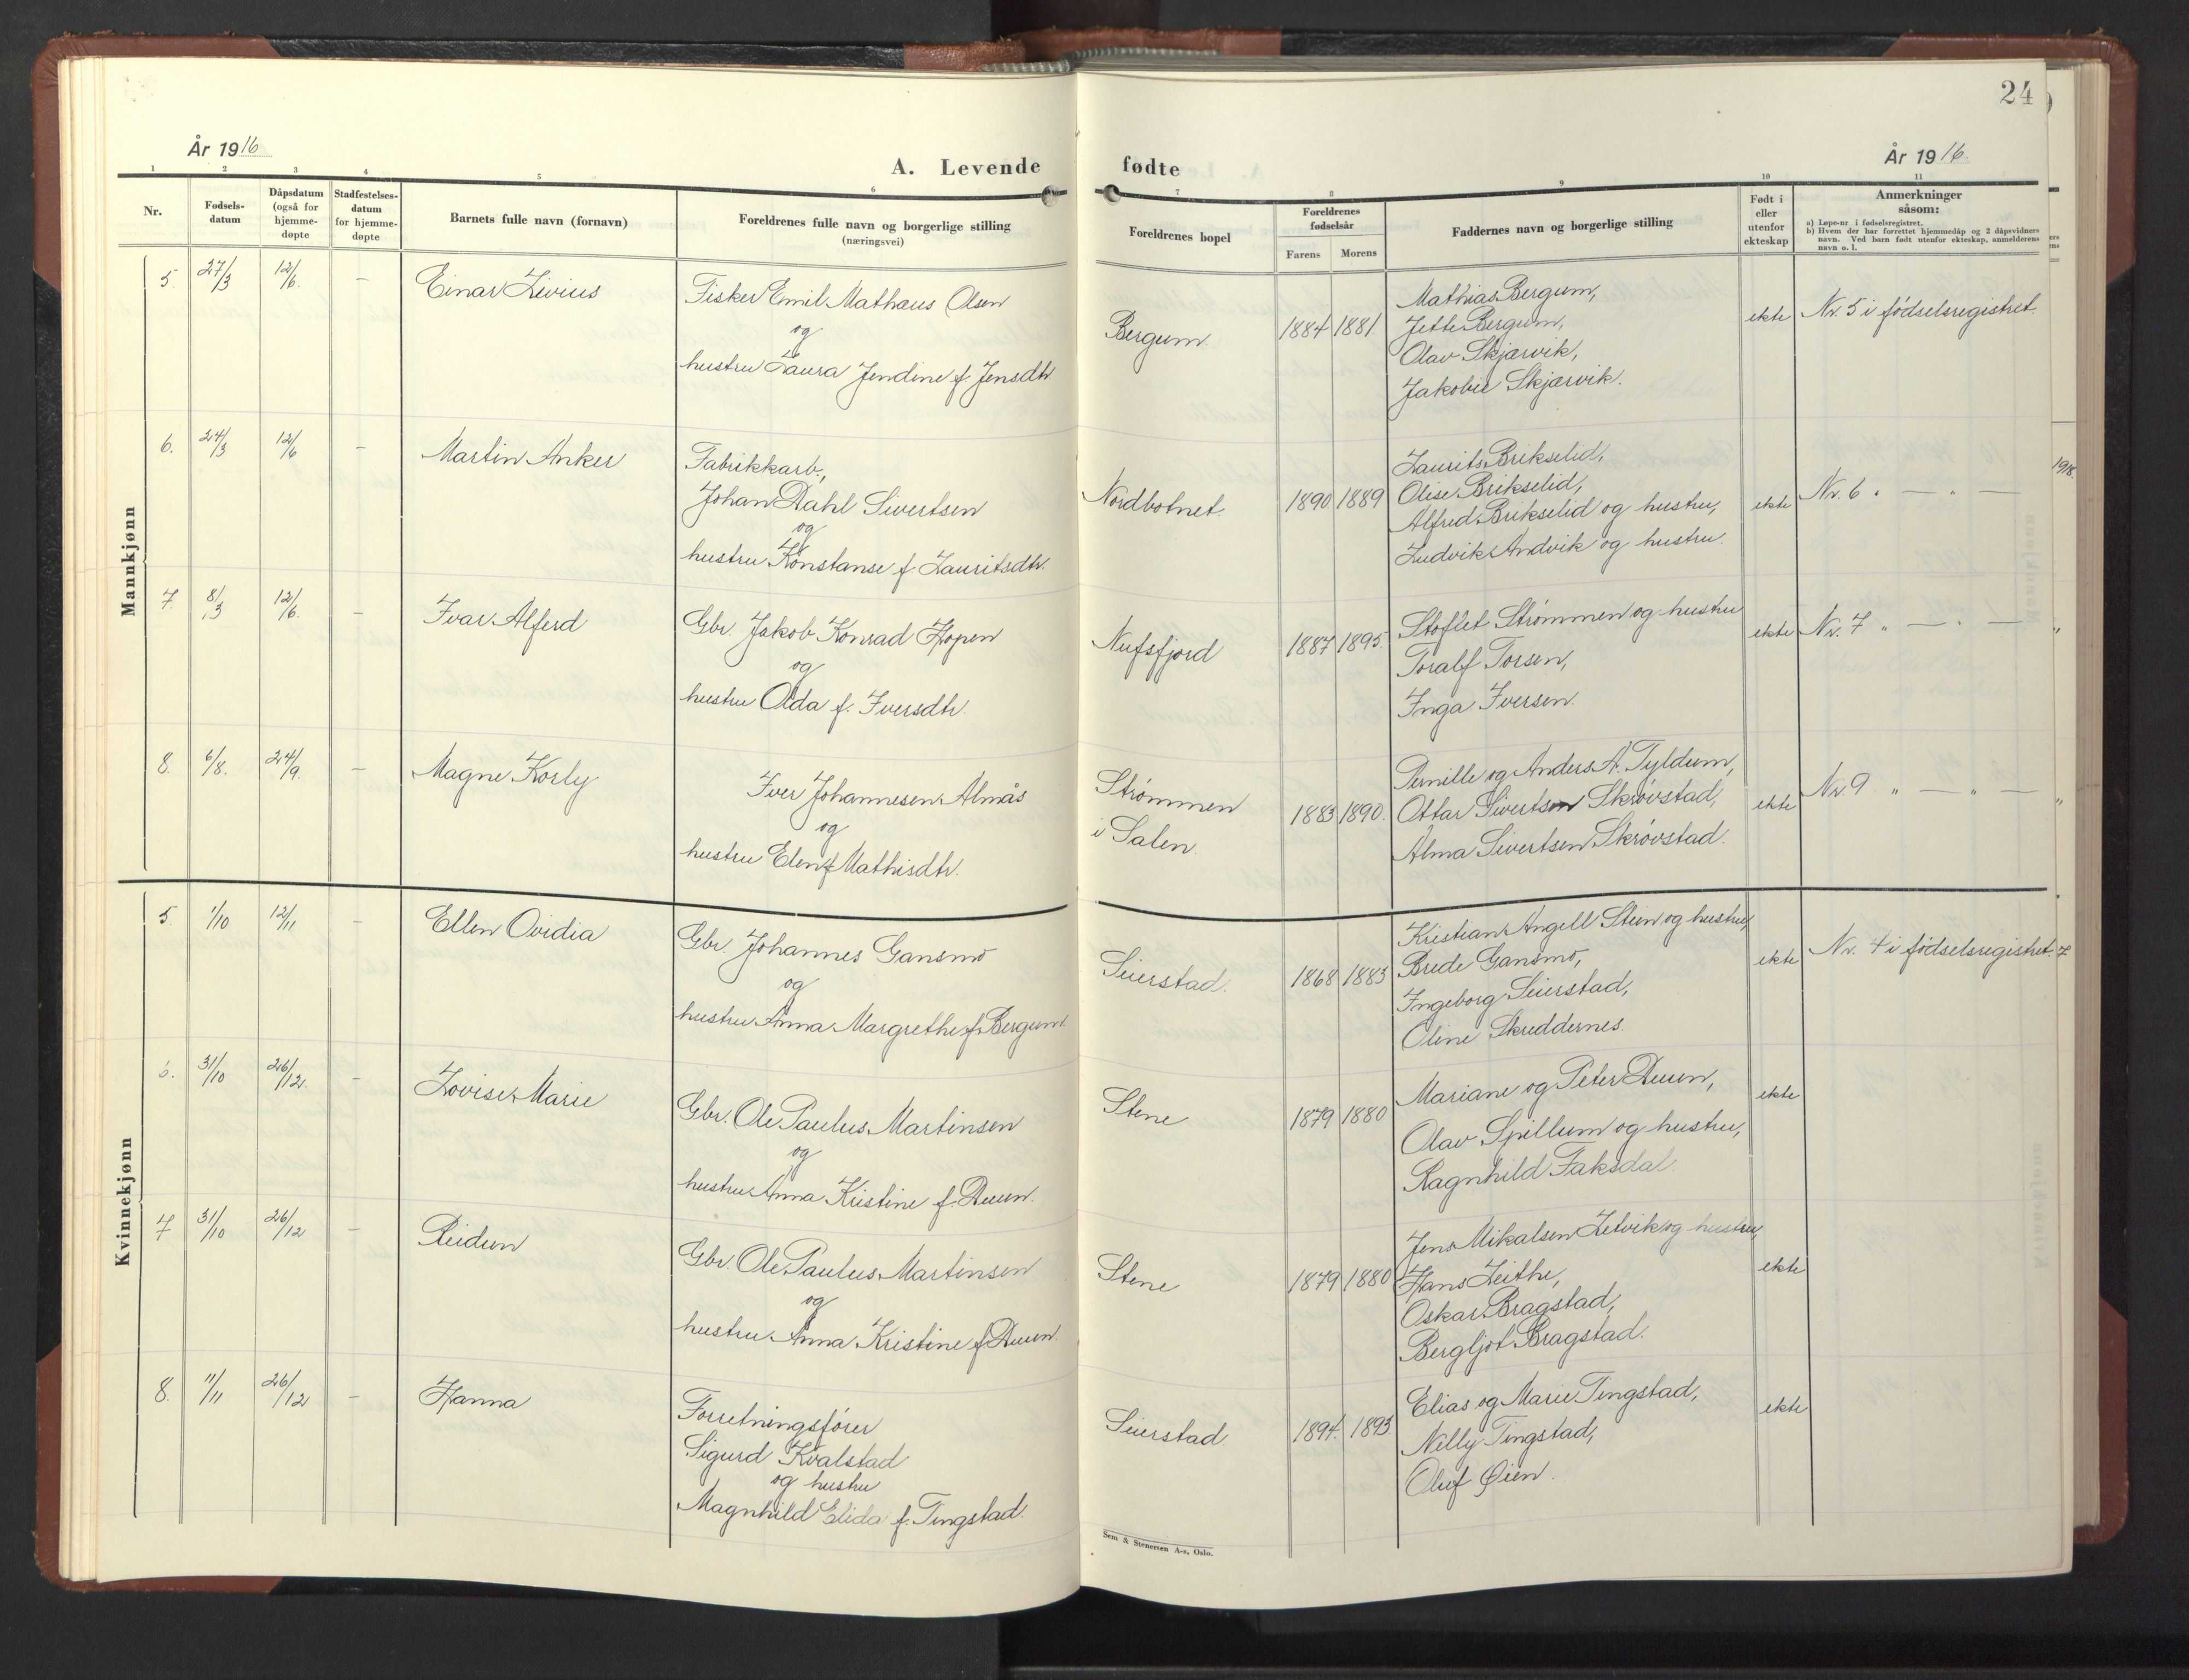 24
År 1916
A. Levende
fødte
År 1916.
1 2 3 4 5 6 7 8 9 10 11
Nr.
Fødsels-
datum
Dåpsdatum
(også for
hjemme-
døpte
Stadfestelses-
datum
for hjemme-
døpte
Barnets fulle navn (fornavn)
Foreldrenes fulle navn og borgerlige stilling
(næringsvei)
Foreldrenes bopel
Foreldrenes
fødselsår
Farens Morens
Faddernes navn og borgerlige stilling
Født i
eller
utenfor
ekteskap
Anmerkninger
såsom:
a) Løpe-nr. i fødselsregistret.
b) Hvem der har forrettet hjemmedåp og 2 dåpsvidners
navn. Ved barn født utenfor ekteskap, anmelderens
navn o. l.
Mannkjønn
5. 27/3 12/6. – Einar Livius
Fisker Emil Mathæus Olsen
og
hustru Laura Jendine f. Jensdtr.
Bergum. 1884 1881.
Mathias Bergum,
Jette Bergum,
Olav Skjærvik,
Jakobie Skjærvik.
ekte Nr. 5 i fødselsregistret.
6. 24/3 12/6 – Martin Anker
Fabrikkarb.,
Johan Dahl Sivertsen
og
hustru Konstanse f. Lauritsdtr.
Nordbotnet. 1890 1889
Laurits Brikselid,
Olise Brikselid,
Alfred Brikselid og hustru,
Ludvik Andvik og hustru.
ekte Nr. 6 " — " —
7. 8/3 12/6. – Ivar Alferd
Gbr. Jakob Konrad Hopen
og
hustru Olda f. Iversdtr.
Nufsfjord 1887 1895.
Stoflet Strømmen og hustru
Toralf Torsen,
Inga Iversen.
ekte Nr. 7 " — " —
8. 6/8. 24/9. – Magne Korly
Iver Johannesen Almås
og
hustru Elen f. Mathisdtr.
Strømmen
i Salen. 1883 1890.
Pernille og Anders A. Tyldum,
Ottar Sivertsen Skrøvstad,
Alma Sivertsen Skrøvstad.
ekte Nr. 9 " — " —
Kvinnekjønn
5. 1/10 12/11 – Ellen Ovidia
Gbr. Johannes Gansmo
og
hustru Anna Margrethe f. Bergum.
Seierstad. 1868 1883
Kristian Angell Stein og hustru,
Brede Gansmo,
Ingeborg Seierstad,
Oline Skreddernes.
ekte Nr. 4 i fødselsregistret.
6. 31/10 26/12. – Lovise Marie
Gbr. Ole Paulus Martinsen
og
hustru Anna Kristine f. Duun.
Stene 1879 1880
Mariane og Peter Duun,
Olav Spillum og hustru,
Ragnhild Faksdal.
ekte
7 31/10 26/12 – Reidun
Gbr. Ole Paulus Martinsen
og
hustru Anna Kristine f. Duun.
Stene 1879 1880
Jens Mikalsen Letvik og hustru,
Hans Leithe,
Oskar Bragstad,
Bergljot Bragstad.
ekte
8. 11/11 26/12 – Hanna
Forretningsfører
Sigurd Kvalstad
og hustru
Magnhild Elida f. Tingstad.
Seierstad 1894. 1893.
Elias og Marie Tingstad,
Nelly Tingstad,
Oluf Øien.
ekte
Sem & Stenersen A-s, Oslo.
1918.